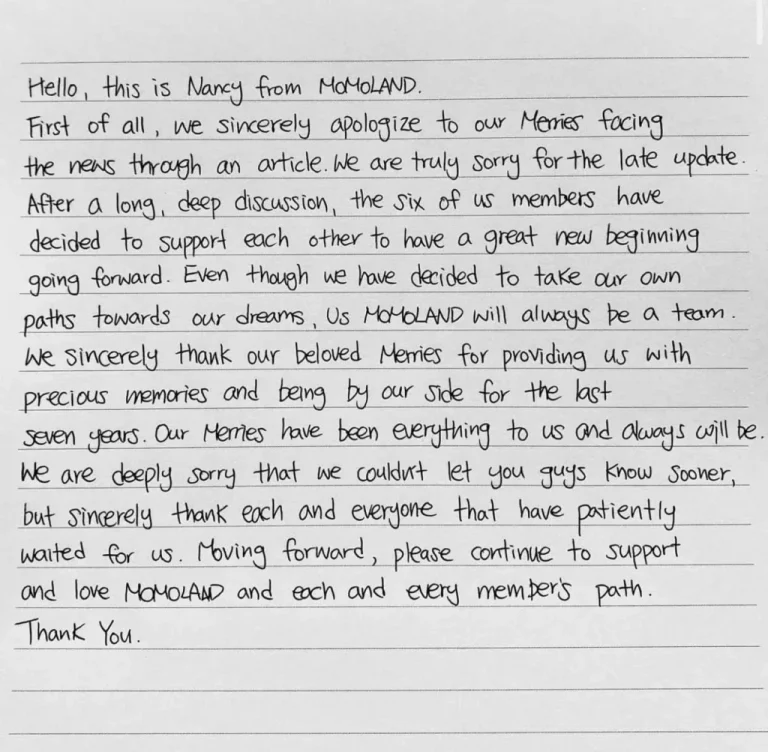 Hello, this is Nancy from MOMOLAND.
First of all, we sincerely apologize to our Merries facing
the news through an article. We are truly sorry for the late update.
After a long, deep discussion, the six of us members have
decided to support each other to have a great new beginning
going forward. Even though we have decided to take our own
paths towards our dreams, Us MOMOLAND will always be a team.
We sincerely thank our beloved Merries for providing us with
precious memories and being by our side for the last
seven years. Our Merries have been everything to us and always will be.
We are deeply sorry that we couldn't let you guys know sooner,
but sincerely thank each and everyone that have patiently
waited for us. Moving forward, please continue to support
and love MOMOLAND and each and every member's path.
Thank You.